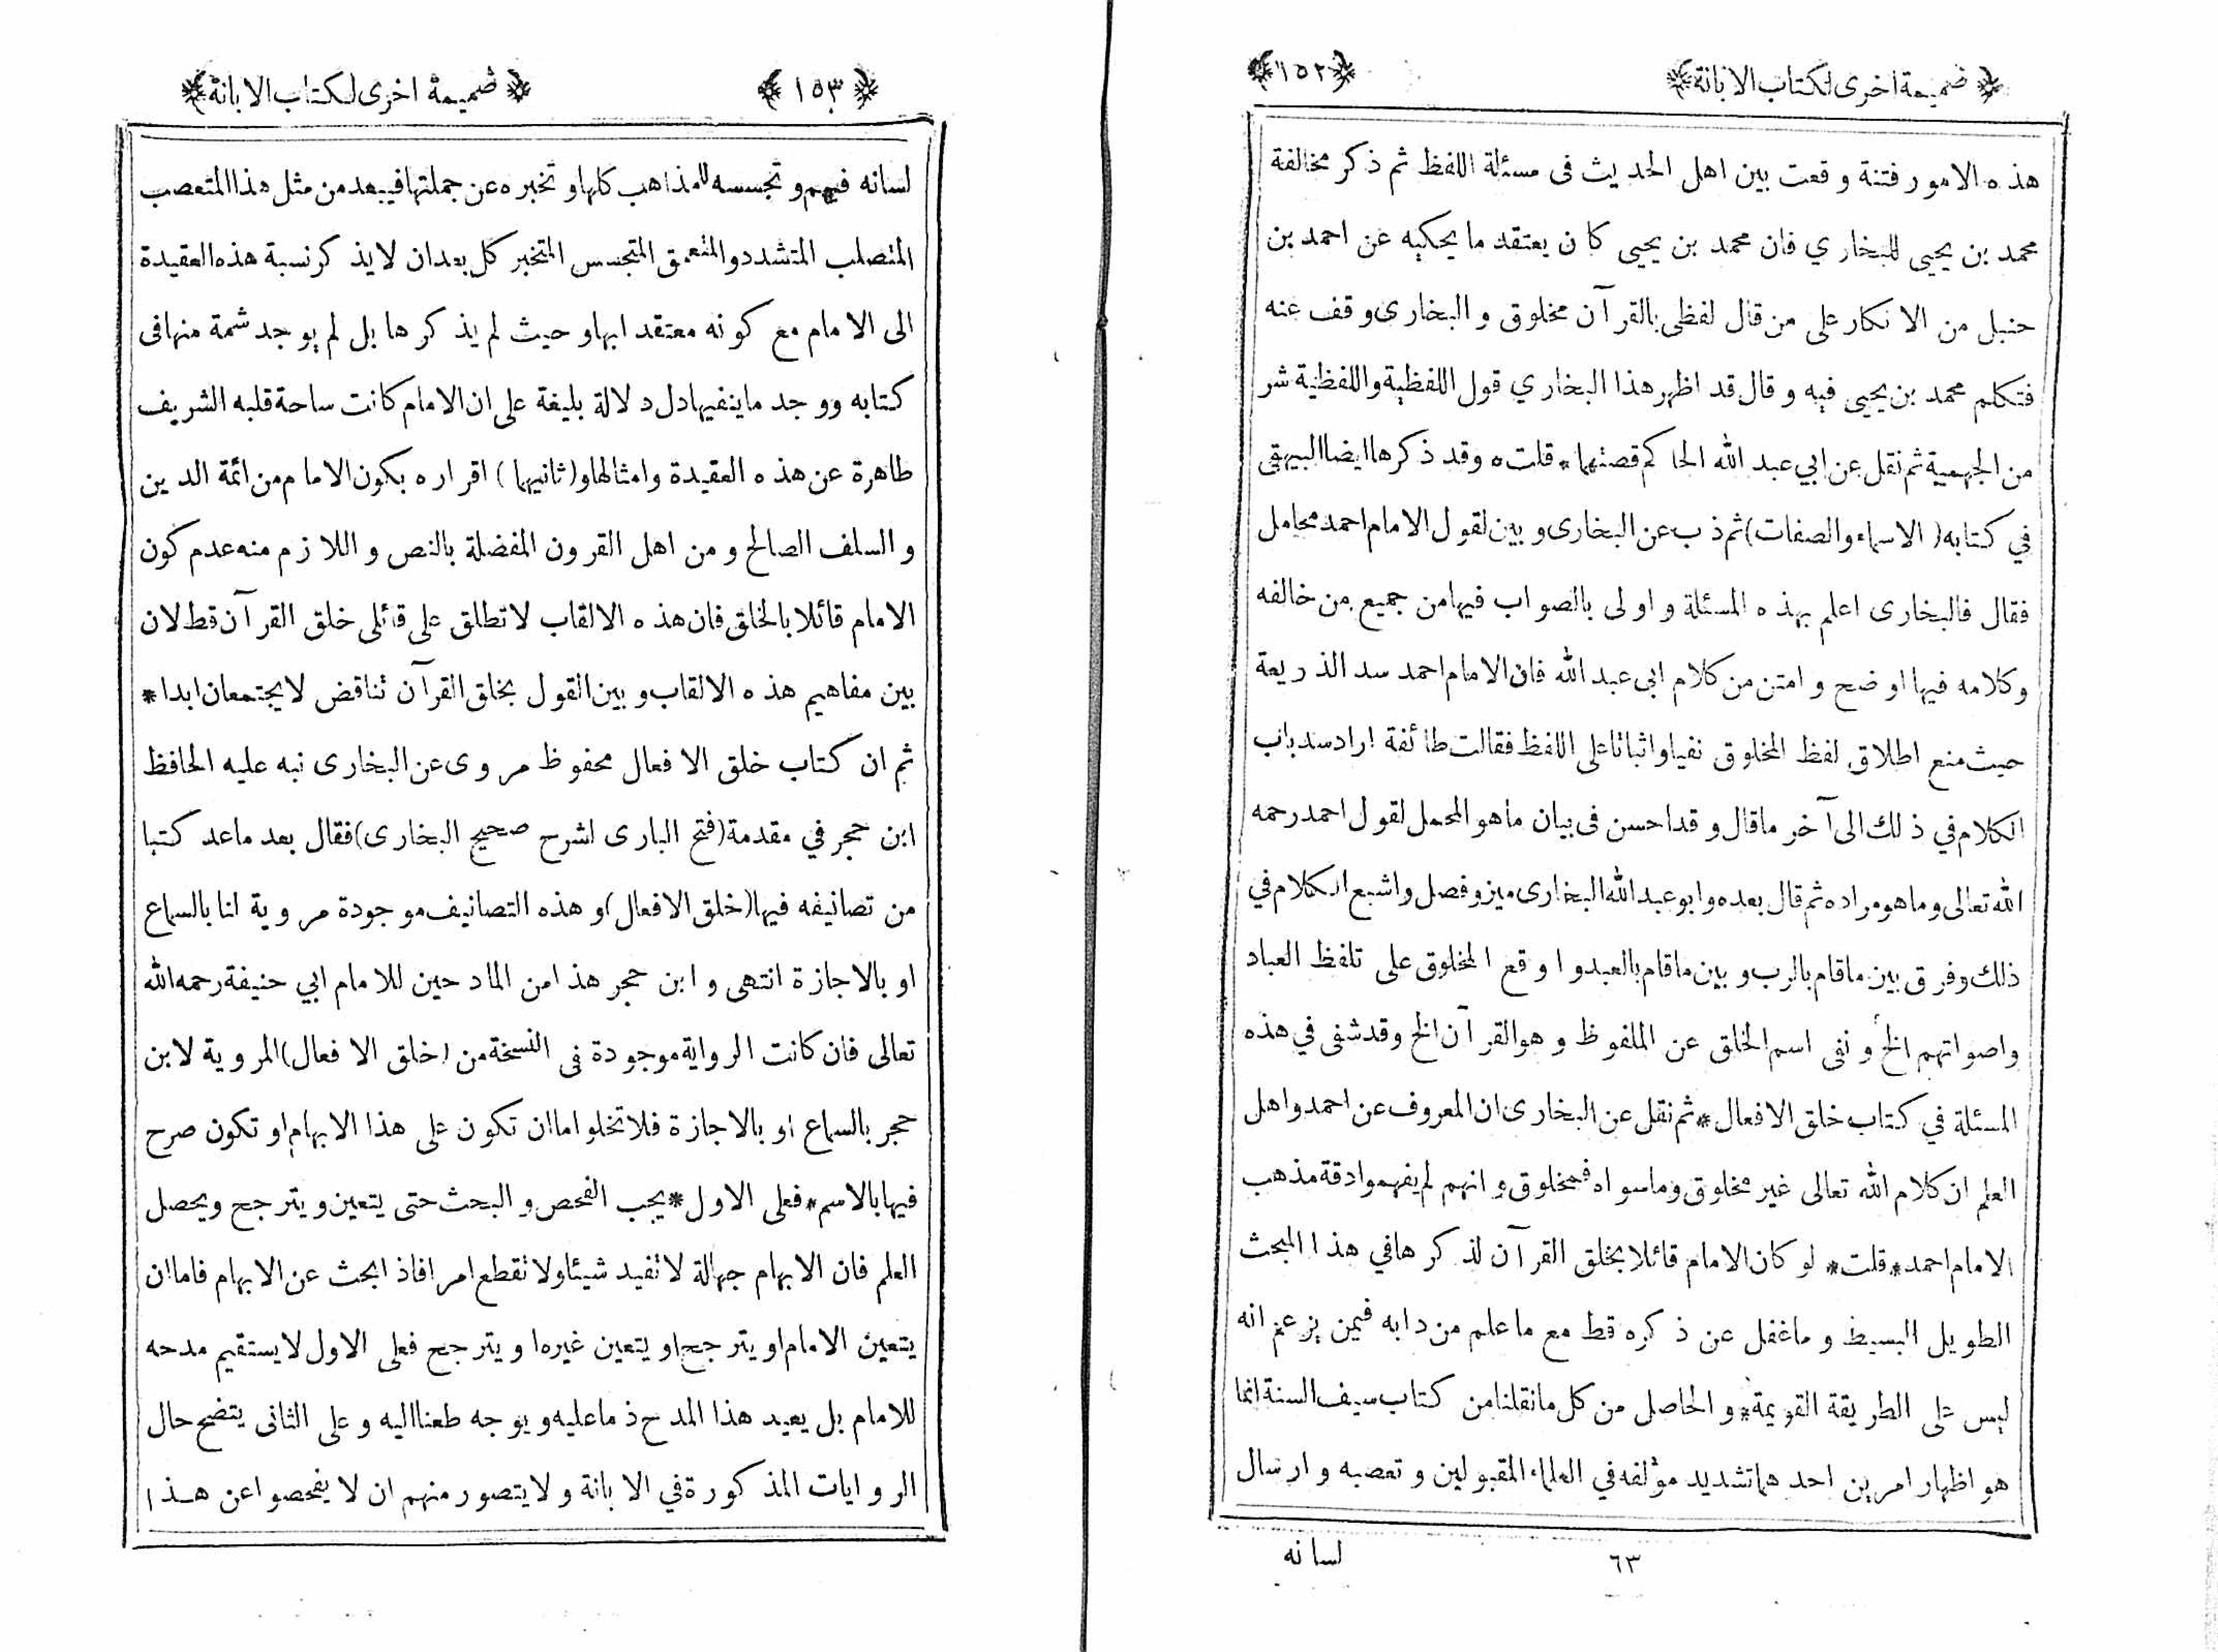 ﴿ ضميمة اخرى لكتاب الابانة ﴾ ﴿ ١٥٢ ﴾
هذه الامور فتنة وقعت بين اهل الحديث فى مسئلة اللفظ ثم ذكر مخالفة
محمد بن يحيى للبخاري فان محمد بن يحيى كان يعتقد ما يحكيه عن احمد بن
حنبل من الانكار على من قال لفظى بالقرآن مخلوق والبخارى وقف عنه
فتكلم محمد بن يحيى فيه وقال قد اظهر هذا البخاري قول اللفظية واللفظية شر
من الجهمية ثم نقل عن ابي عبد الله الحاكم قصتها * قلت ه وقد ذكرها ايضا البيهقى
في كتابه ( الاسماء والصفات ) ثم ذب عن البخارى و بين لقول الامام احمد محامل
فقال فالبخارى اعلم بهذه المسئلة واولى بالصواب فيها من جميع من خالفه
وكلامه فيها اوضح وامتن من كلام ابى عبد الله فان الامام احمد سد الذريعة
حيث منع اطلاق لفظ المخلوق نفيا واثباتا على اللفظ فقالت طائفة اراد سد باب
الكلام في ذلك الى آخر ما قال وقد احسن فى بيان ما هو المحمل لقول احمد رحمه
الله تعالى وما هو مراده ثم قال بعده وابو عبد الله البخارى ميز وفصل واشبع الكلام في
ذلك وفرق بين ما قام بالرب و بين ما قام بالعبد واوقع المخلوق على تلفظ العباد
واصواتهم الخ و نفى اسم الخلق عن الملفوظ وهو القرآن الخ وقد شفى في هذه
المسئلة في كتاب خلق الافعال * ثم نقل عن البخارى ان المعروف عن احمد واهل
العلم ان كلام الله تعالى غير مخلوق وما سواه فمخلوق وانهم لم يفهموا دقة مذهب
الامام احمد * قلت * لو كان الامام قائلا بخلق القرآن لذكرها في هذا المبحث
الطويل البسيط وما غفل عن ذكره قط مع ما علم من دابه فيمن يزعم انه
ليس على الطريقة القويمة * والحاصل من كل ما نقلنا من كتاب سيف السنة انما
هو اظهار امرين احدهما تشديد مؤلفه في العلماء المقبولين وتعصبه وارسال
٦٣ لسانه
﴿ ١٥٣ ﴾ ﴿ ضميمة اخرى لكتاب الابانة ﴾
لسانه فيهم و تجسسه للمذاهب كلها و تخبره عن جملتها فيبعد من مثل هذا المتعصب
المتصلب المتشدد والمتعمق المتجسس المتخبر كل بعد ان لا يذكر نسبة هذه العقيدة
الى الامام مع كونه معتقدا بها و حيث لم يذكرها بل لم يوجد شمة منها فى
كتابه ووجد ما ينفيها دل دلالة بليغة على ان الامام كانت ساحة قلبه الشريف
طاهرة عن هذه العقيدة وامثالها و ( ثانيهما ) اقراره بكون الامام من ائمة الدين
و السلف الصالح ومن اهل القرون المفضلة بالنص واللازم منه عدم كون
الامام قائلا بالخلق فان هذه الالقاب لا تطلق على قائلى خلق القرآن قط لان
بين مفاهيم هذه الالقاب و بين القول بخلق القرآن تناقض لا يجتمعان ابدا *
ثم ان كتاب خلق الافعال محفوظ مروى عن البخارى نبه عليه الحافظ
ابن حجر في مقدمة ( فتح البارى لشرح صحيح البخارى ) فقال بعد ما عد كتبا
من تصانيفه فيها ( خلق الافعال ) و هذه التصانيف موجودة مروية لنا بالسماع
او بالاجازة انتهى و ابن حجر هذا من المادحين للامام ابي حنيفة رحمه الله
تعالى فان كانت الرواية موجودة فى النسخة من ( خلق الافعال ) المروية لابن
حجر بالسماع او بالاجازة فلا تخلوا ما ان تكون على هذا الابهام او تكون صرح
فيها بالاسم * فعلى الاول * يجب الفحص و البحث حتى يتعين و يترجح و يحصل
العلم فان الابهام جهالة لا تفيد شيئا ولا تقطع امرا فاذا بحث عن الابهام فاما ان
يتعين الامام او يترجح او يتعين غيره او يترجح فعلى الاول لا يستقيم مدحه
للامام بل يعيد هذا المدح ذما عليه و يوجه طعنا اليه و على الثانى يتضح حال
الروايات المذكورة في الابانة ولا يتصور منهم ان لا يفحصوا عن هذا